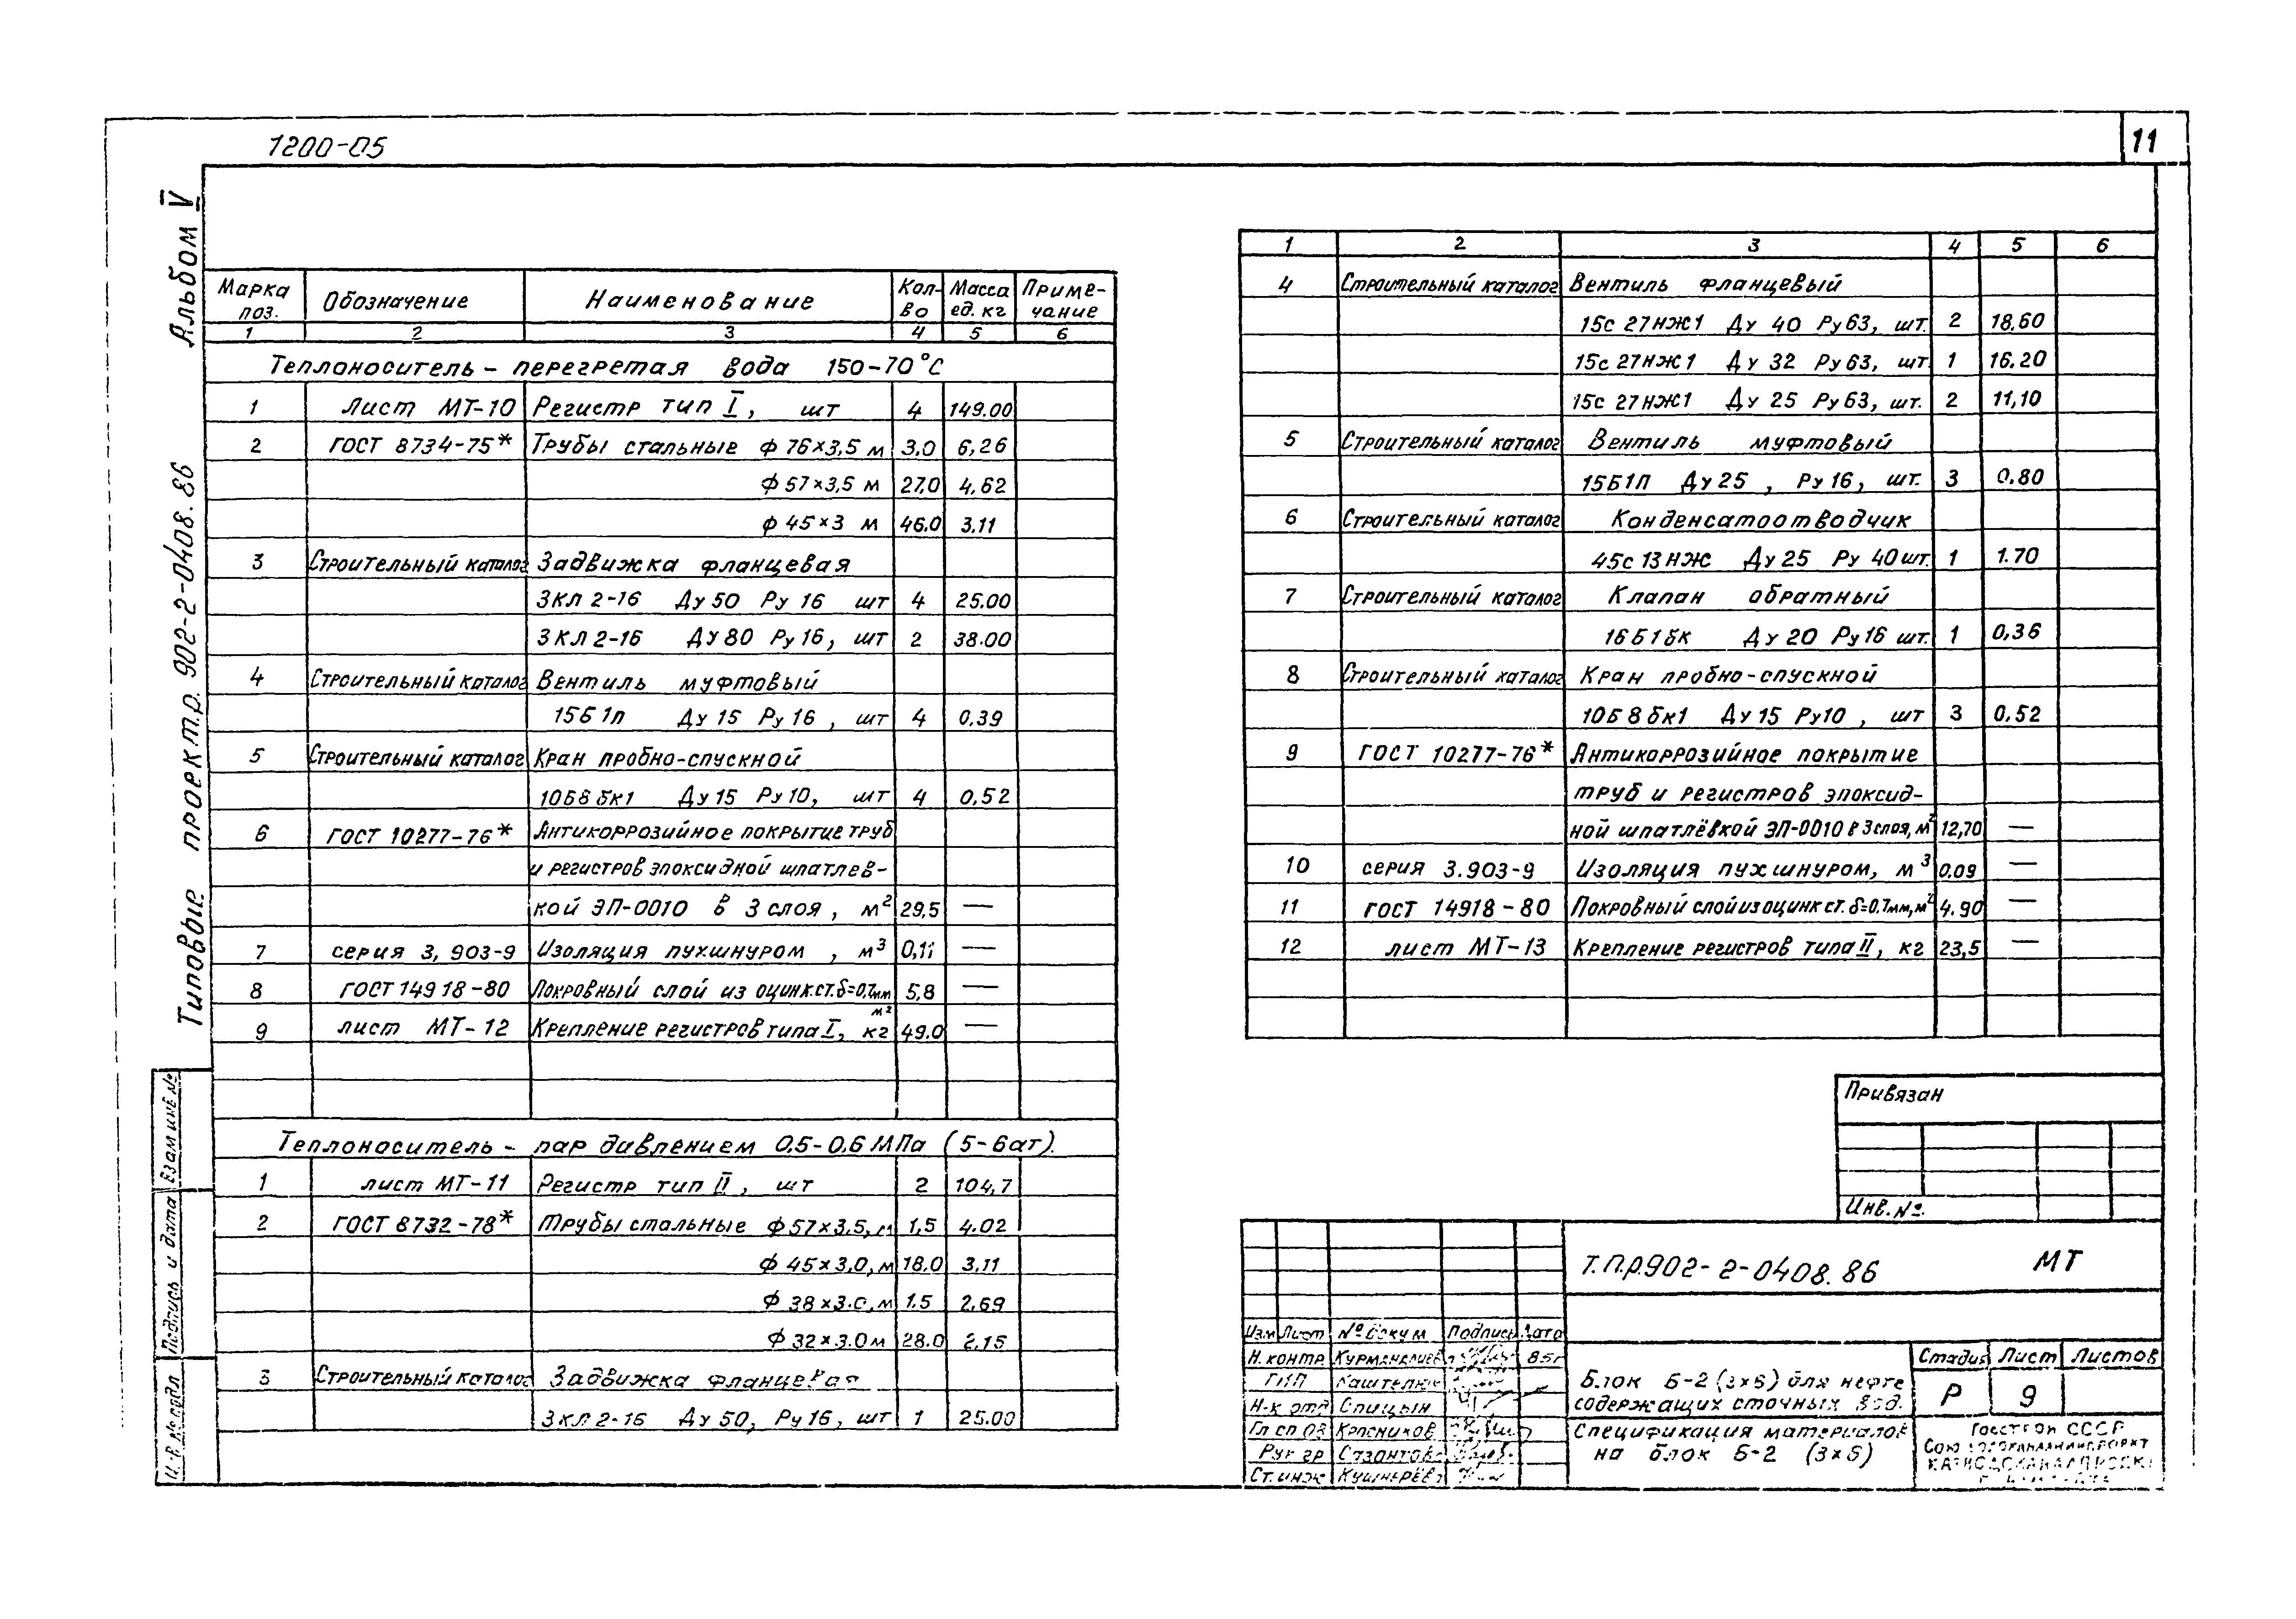 1200-05
11
Альбом V
Типовые проект.т.р. 902-2-0408.86
Марка поз. Обозначение Наименование Кол-во Масса ед. кг Приме-чание
1 2 3 4 5 6
Теплоноситель - перегретая вода 150-70°С
1 Лист МТ-10 Регистр тип I, шт 4 149.00
2 ГОСТ 8734-75* Трубы стальные ф 76×3,5 м 3,0 6,26
ф 57×3,5 м 27,0 4,62
ф 45×3 м 46.0 3.11
3 Строительный каталог Задвижка фланцевая
3КЛ 2-16 Ду 50 Ру 16 шт 4 25.00
3КЛ 2-16 Ду 80 Ру 16, шт 2 38.00
4 Строительный каталог Вентиль муфтовый
15Б1п Ду 15 Ру 16, шт 4 0.39
5 Строительный каталог Кран пробно-спускной
10Б8бк1 Ду 15 Ру 10, шт 4 0,52
6 ГОСТ 10277-76* Антикоррозийное покрытие труб
и регистров эпоксидной шпатлев-
кой ЭП-0010 в 3 слоя, м² 29,5 —
7 серия 3,903-9 Изоляция пухшнуром, м³ 0,11 —
8 ГОСТ 14918-80 Покровный слой из оцинк.ст. δ=0,7мм м² 5,8 —
9 лист МТ-12 Крепление регистров типа I, кг 49.0 —
Теплоноситель - пар давлением 0.5-0,6 МПа (5-6ат).
1 лист МТ-11 Регистр тип II, шт 2 104,7
2 ГОСТ 8732-78* Трубы стальные ф 57×3.5, м 1,5 4.02
ф 45×3,0, м 18.0 3,11
ф 38×3.0, м 1.5 2,69
ф 32×3.0 м 28.0 2,15
3 Строительный каталог Задвижка фланцевая
3кл 2-16 Ду 50, Ру 16, шт 1 25.00
1 2 3 4 5 6
4 Строительный каталог Вентиль фланцевый
15с 27НЖ1 Ду 40 Ру 63, шт. 2 18,60
15с 27НЖ1 Ду 32 Ру 63, шт. 1 16.20
15с 27НЖ1 Ду 25 Ру 63, шт. 2 11,10
5 Строительный каталог Вентиль муфтовый
15Б1П Ду 25, Ру 16, шт. 3 0.80
6 Строительный каталог Конденсатоотводчик
45с 13НЖ Ду 25 Ру 40 шт. 1 1.70
7 Строительный каталог Клапан обратный
16Б1бк Ду 20 Ру 16 шт. 1 0,36
8 Строительный каталог Кран пробно-спускной
10Б8бк1 Ду 15 Ру10, шт 3 0.52
9 ГОСТ 10277-76* Антикоррозийное покрытие
труб и регистров эпоксид-
ной шпатлёвкой ЭП-0010 в 3 слоя, м² 12,70 —
10 серия 3.903-9 Изоляция пухшнуром, м³ 0,09 —
11 гост 14918-80 Покровный слой из оцинк ст. δ=0.7мм, м² 4.90 —
12 лист МТ-13 Крепление регистров типа II, кг 23,5 —
Привязан
Инв.№.
Т.п.р.902-2-0408.86 МТ
Изм Лист № докум Подпись Дата
Н.контр 85г
ГИП
Н-к отд Спицын
Гл сп ОВ Красников
Рук гр
Ст.инж
Блок Б-2 (3×6) для нефте
содержащих сточных вод.
Стадия Лист Листов
Р 9
Спецификация материалов
на блок Б-2 (3×6)
Госстрой СССР
Взам инв №
Подпись и дата
Инв № подл